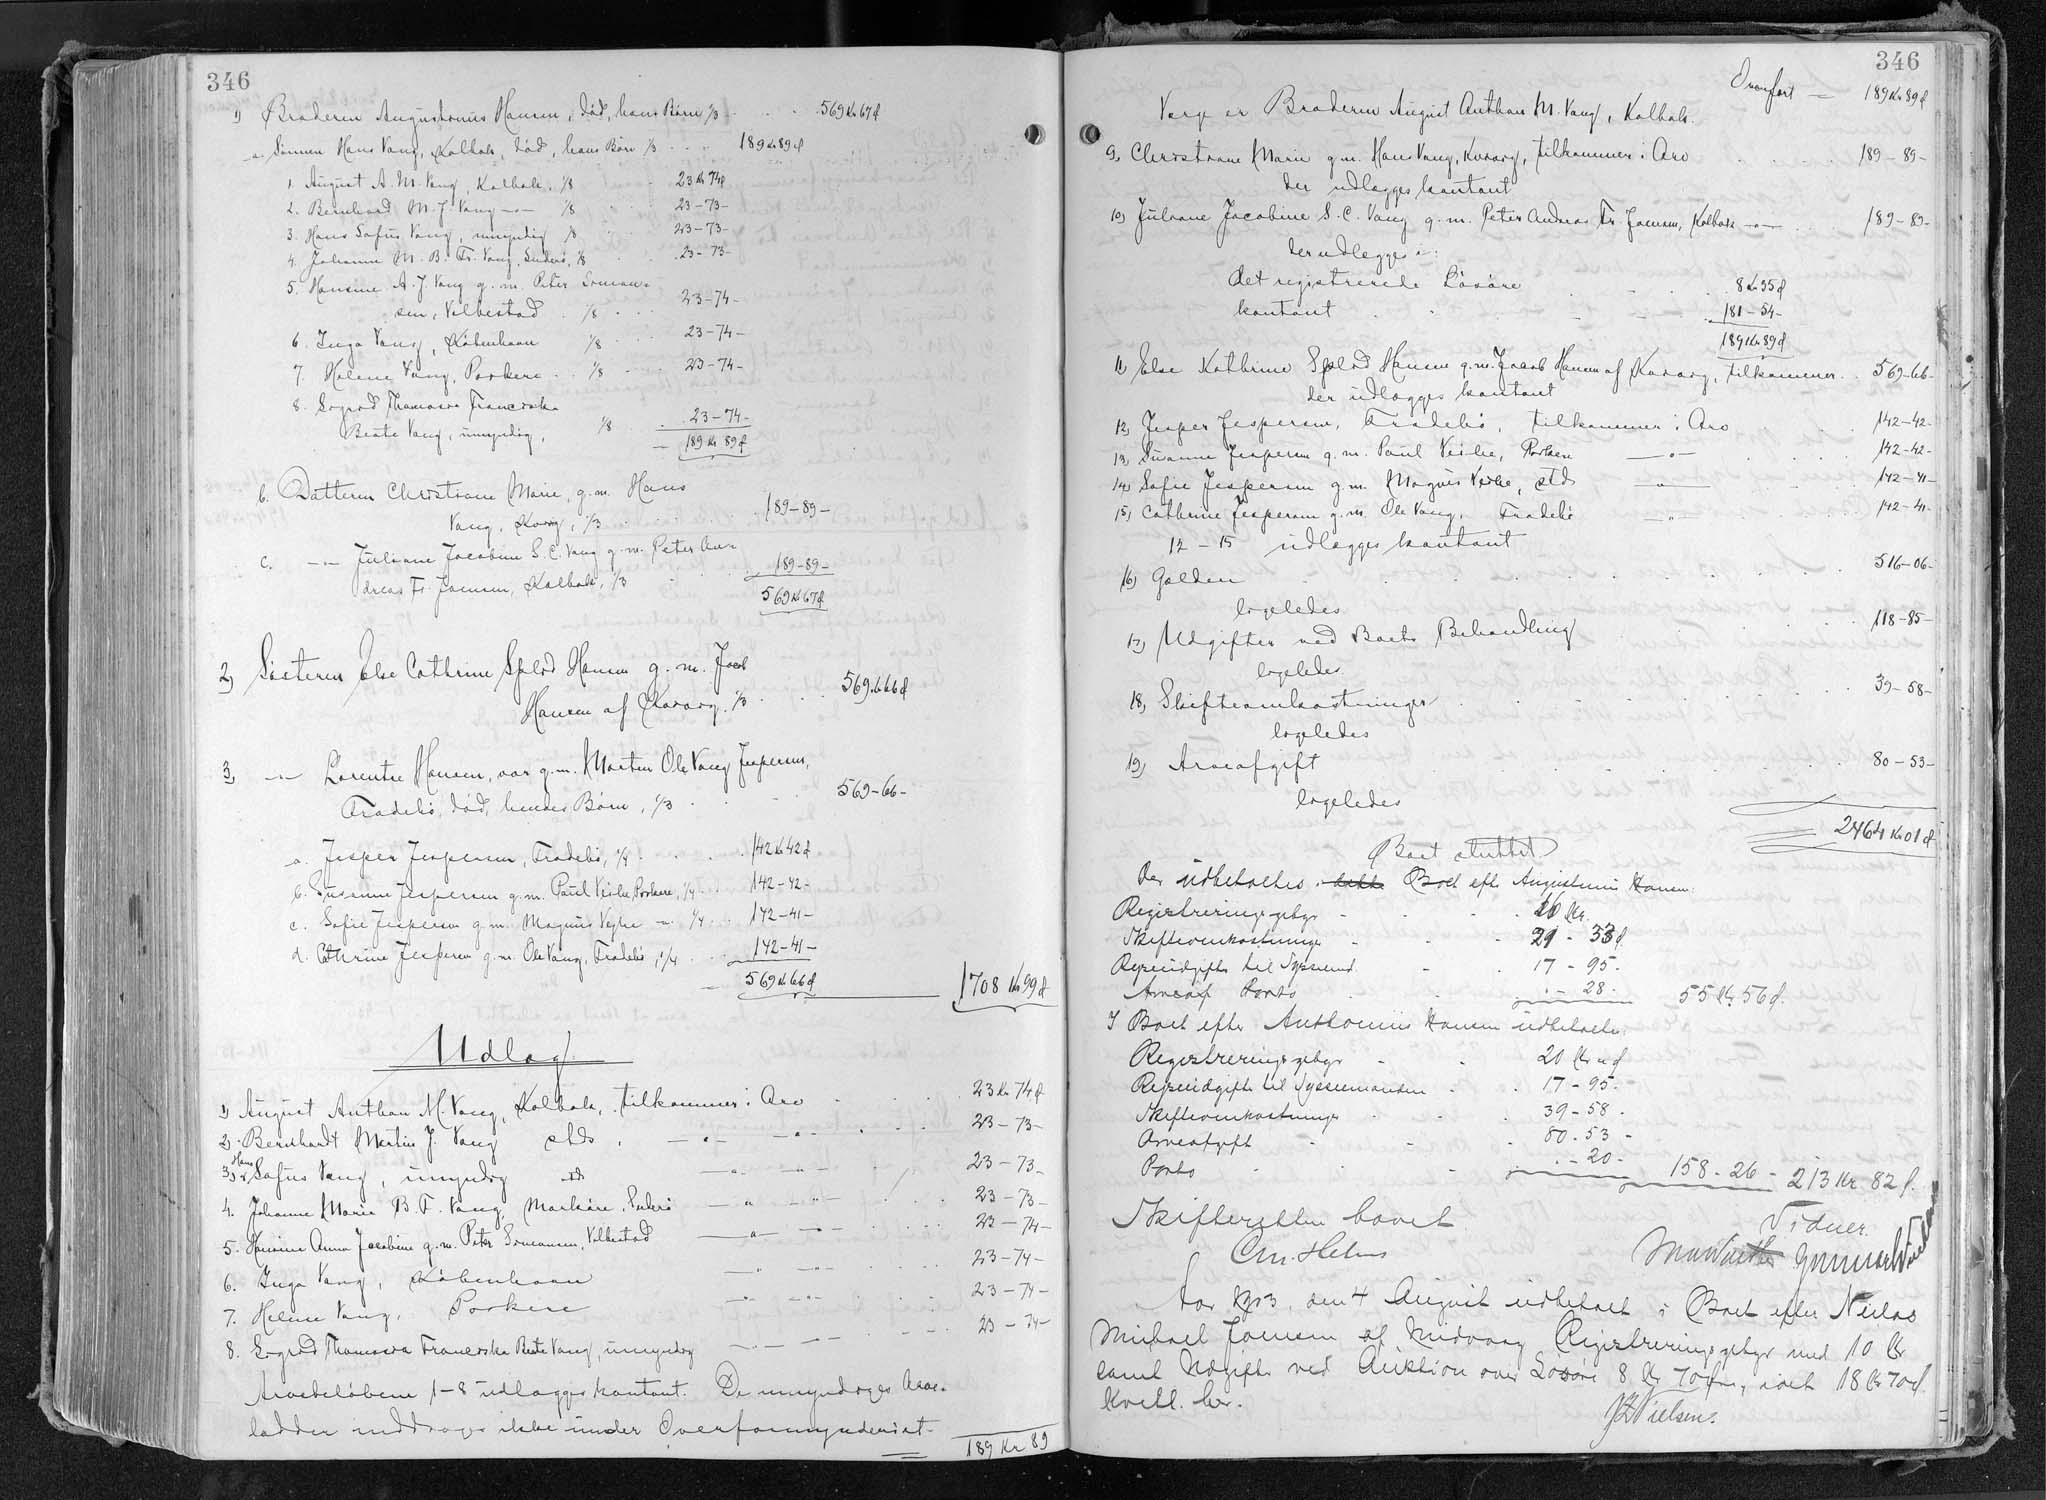 346
1) Broderen Augustinus Hansen, død, hans Børn 1/3 . . . 569 Kr 67 Ø
a. Sønnen Hans Vang, Kolbak, død, hans Børn 1/3 . . . 189 Kr 89 Ø
1. August A. M. Vang, Kolbak, 1/8 . 23 Kr 74 Ø
2. Bernhard M. J. Vang —"— 1/8 . . 23-73-
3. Hans Sofus Vang, umyndig 1/8 . . 23-73-
4. Johanne M. B. Fr. Vang, Suderø, 1/8 . . 23-73-
5. Hansine A. J. Vang g. m. Peter Simon-
sen, Velbestad . 1/8 . . . 23-74-
6. Inga Vang, København 1/8 . . . 23-74-
7. Helene Vang, Porkere . . 1/8 . . . 23-74-
8. Sigrid Thomasia Franciska
Beate Vang, umyndig, 1/8 . . 23-74-
189 Kr 89 Ø
b. Datteren Christiane Marie, g. m. Hans
Vang, Kvivig, 1/3 . . . . . 189-89-
c. —"— Juliane Jacobine S. C. Vang g. m. Peter An-
dreas Fr. Joensen, Kolbak, 1/3 . . . 189-89-
569 Kr 67 Ø
2) Søsteren Else Cathrine Hansen g. m. Jacob
Hansen af Kvivig, 1/3 . . . . 569.66 Ø
3) —"— Hansen, var g. m. Morten Ole Vang Jespersen,
Frodebø, død, hendes Børn, 1/3 . . . 569-66-
a. Jesper Jespersen, Frodebø, 1/4 . . . 142 Kr 42 Ø
b. Susanne Jespersen g. m. Paul Veihe, Porkere, 1/4 . . 142-42-
c. Sofie Jespersen g. m. Magnus Vejhe —"— 1/4 . . 142-41-
d. Cathrine Jespersen g. m. Ole Vang, Frodebø, 1/4 . . 142-41-
569 Kr 66 Ø
1708 Kr 99 Ø
Udlæg
1) August Anthon M. Vang, Kolbak, tilkommer i Arv . . . 23 Kr 74 Ø
2) Bernhardt Martin J. Vang stds, —"— —"— . . . 23-73-
3) Hans Sofus Vang, umyndig —"— —"— . . 23-73-
4. Johanne Marie B. F. Vang, Suderø —"— —"— . . 23-73-
5. Hansine Anna Jacobine g. m. Peter Simonsen, Velbestad —"— —"— . . . 23-74-
6. Inga Vang, København —"— —"— . . . 23-74-
7. Helene Vang, Porkere —"— —"— . . . 23-74-
8. Sigrid Thomasia Franciska Beate Vang, umyndig —"— —"— . . . 23-74-
Arvebeløbene 1-8 udlægges kontant. De umyndiges Arve-
lodder inddrages ikke under Overformynderiet.
189 Kr 89
346
Overført — 189 Kr 89 Ø
Værge er Broderen August Anthon M. Vang, Kolbak.
9) Christiane Marie g. m. Hans Vang, Kvivig, tilkommer i Arv . . . . 189-89-
der udlægges kontant
10) Juliane Jacobine S. C. Vang g. m. Peter Andreas Fr. Joensen, Kolbak —"— . . . 189-89-
der udlægges i:
det registrerede Løsøre . . . 8 Kr 35 Ø
kontant . . . . . . 181-54-
189 Kr 89 Ø
11) Else Kathrine Hansen g. m. Jacob Hansen af Kvivig, tilkommer . . 569-66-
der udlægges kontant
12) Jesper Jespersen, Frodebø, tilkommer i Arv . . . 142-42-
13) Susanne Jespersen g. m. Paul Veihe, Porkere —"— . . . 142-42-
14) Sofie Jespersen g. m. Magnus Veihe, stds —"— . . . 142-41-
15) Cathrine Jespersen g. m. Ole Vang, Frodebø —"— . . . 142-41-
12-15 udlægges kontant
16) Gælden . . . . . . 516-06-
ligeledes
17) Udgifter ved Boets Behandling . . . 118-85-
ligeledes
18) Skifteomkostninger . . . . . . 39-58-
ligeledes
19) Arveafgift . . . . . . 80-53-
ligeledes
2464 Kr 01 Ø
Boet sluttet
Der udbetaltes i Boet efter Augustinus Hansen:
Registreringsgebyr - - - 16 Kr.
Skifteomkostninger - - - 21 - 33 Ø
Rejseudgifter til Sysselmd. - - 17 - 95.
Porto - - . - 28. 55 Kr. 56 Ø.
I Boet efter Anthonius Hansen udbetaltes:
Registreringsgebyr - - 20 Kr " Ø
Rejseudgifter til Sysselmanden - . 17 - 95.
Skifteomkostninger . . . 39 - 58.
Arveafgift - - - 80 - 53 -
Porto - - - . - 20 - 158 - 26 - 213 Kr 82 Ø.
Skifteretten hævet.
Chr. Helms
Vidner:
Aar 1913, den 4 August udbetalt i Boet efter Niclas
Michael Joensen af Midvaag Registreringsgebyr med 10 Kr
samt Udgifter ved Auktion over Løsøre 8 Kr 70 Øre, ialt 18 Kr 70 Ø.
Kvitt. her.
Nielsen.